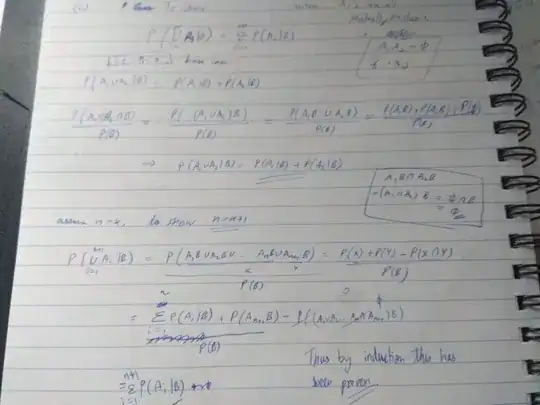 To show when A₁, A₂
mutually exclusive
P(⋃ Aᵢ|B) = Σ P(Aᵢ|B)
A₁A₂ = ϕ
base case
P(A₁∪A₂|B) = P(A₁|B) + P(A₂|B)
P(A₁∪A₂∩B)/P(B) = P((A₁∪A₂)B)/P(B) = P(A₁B ∪ A₂B)/P(B) = P(A₁B) + P(A₂B)/P(B)
→ P(A₁∪A₂|B) = P(A₁|B) + P(A₂|B)
A₁B∩A₂B
=(A₁∩A₂)B = ϕ∩B
= ϕ
assume n=k, to show n=k+1
P(⋃ Aᵢ|B) = P(A₁B∪A₂B∪ AₙB∪Aₙ₊₁B)/P(B) = P(X)+P(Y)−P(X∩Y)/P(B)
x y
= Σ P(Aᵢ|B) + P(Aₙ₊₁B) − P((A₁∪A₂ Aₙ∩Aₙ₊₁)B)
P(B)
Thus by induction this has
been proven
= Σ P(Aᵢ|B)